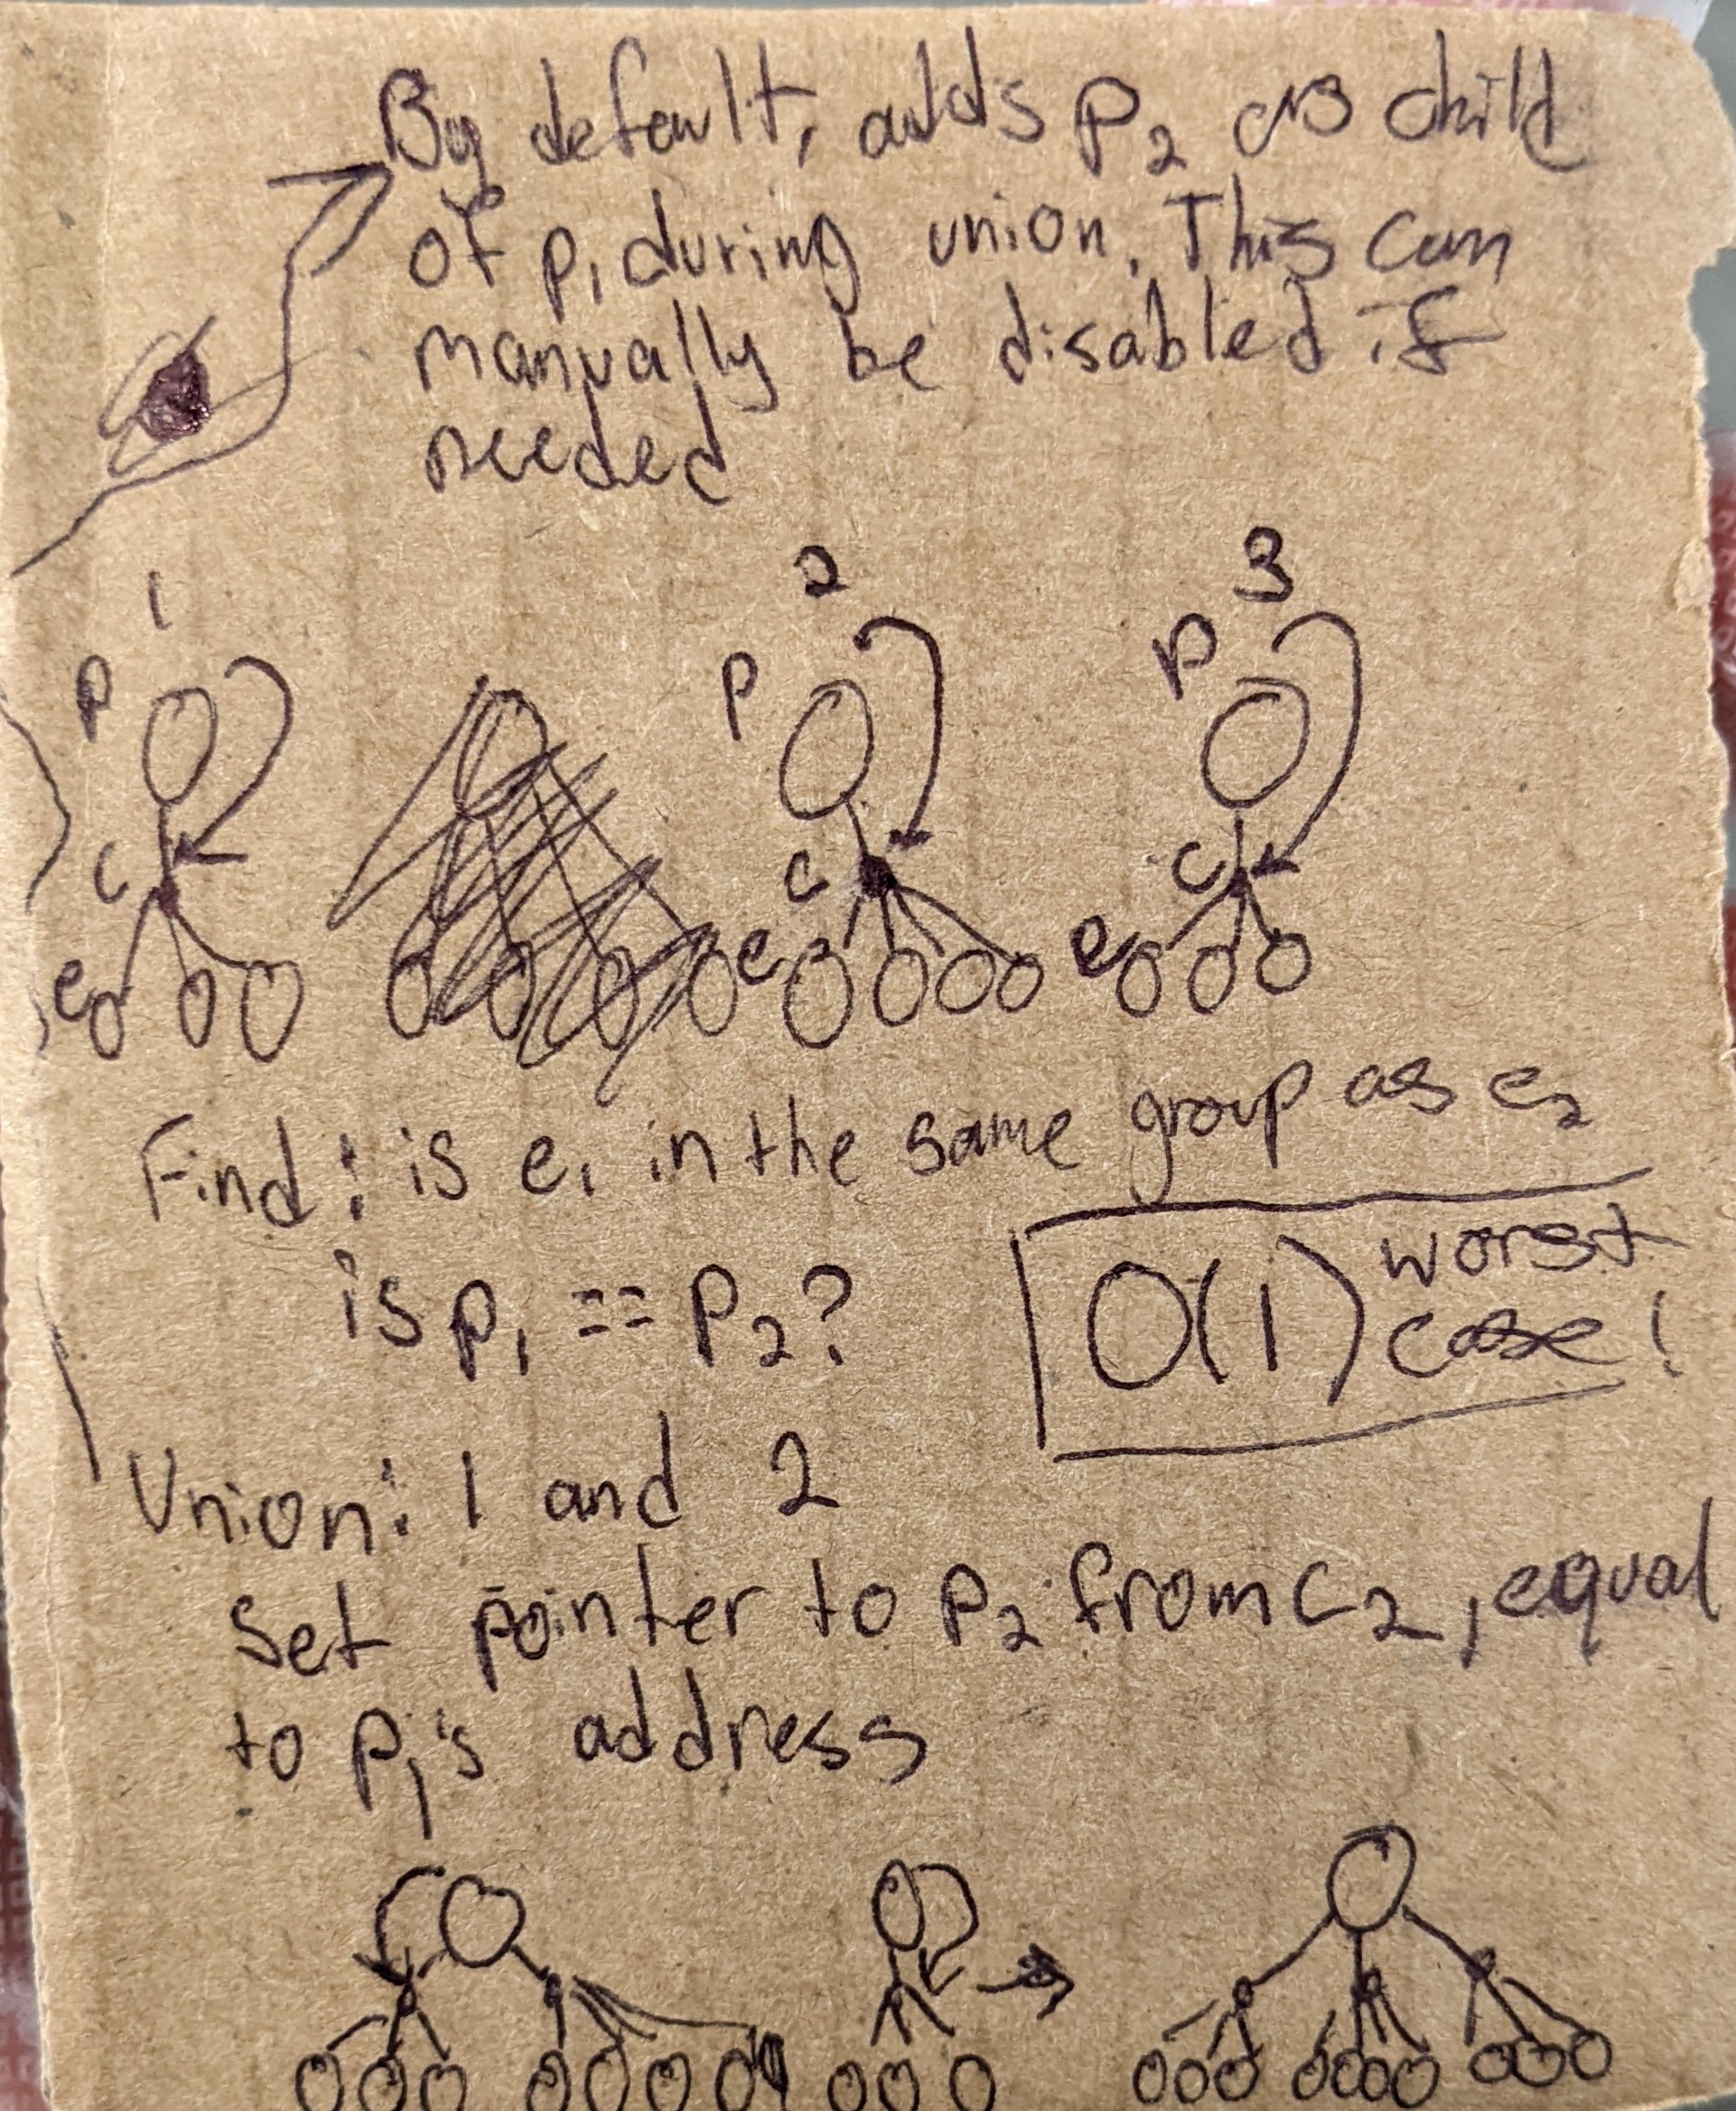 By default, adds P₂ as child
of p₁ during union. This can
manually be disabled if
needed
1 2 3
P P P
c c c
e e e
Find: is e₁ in the same group as e₂
is p₁ == P₂?
O(1) worst case!
Union: 1 and 2
Set pointer to P₂ from C₂, equal
to P₁'s address